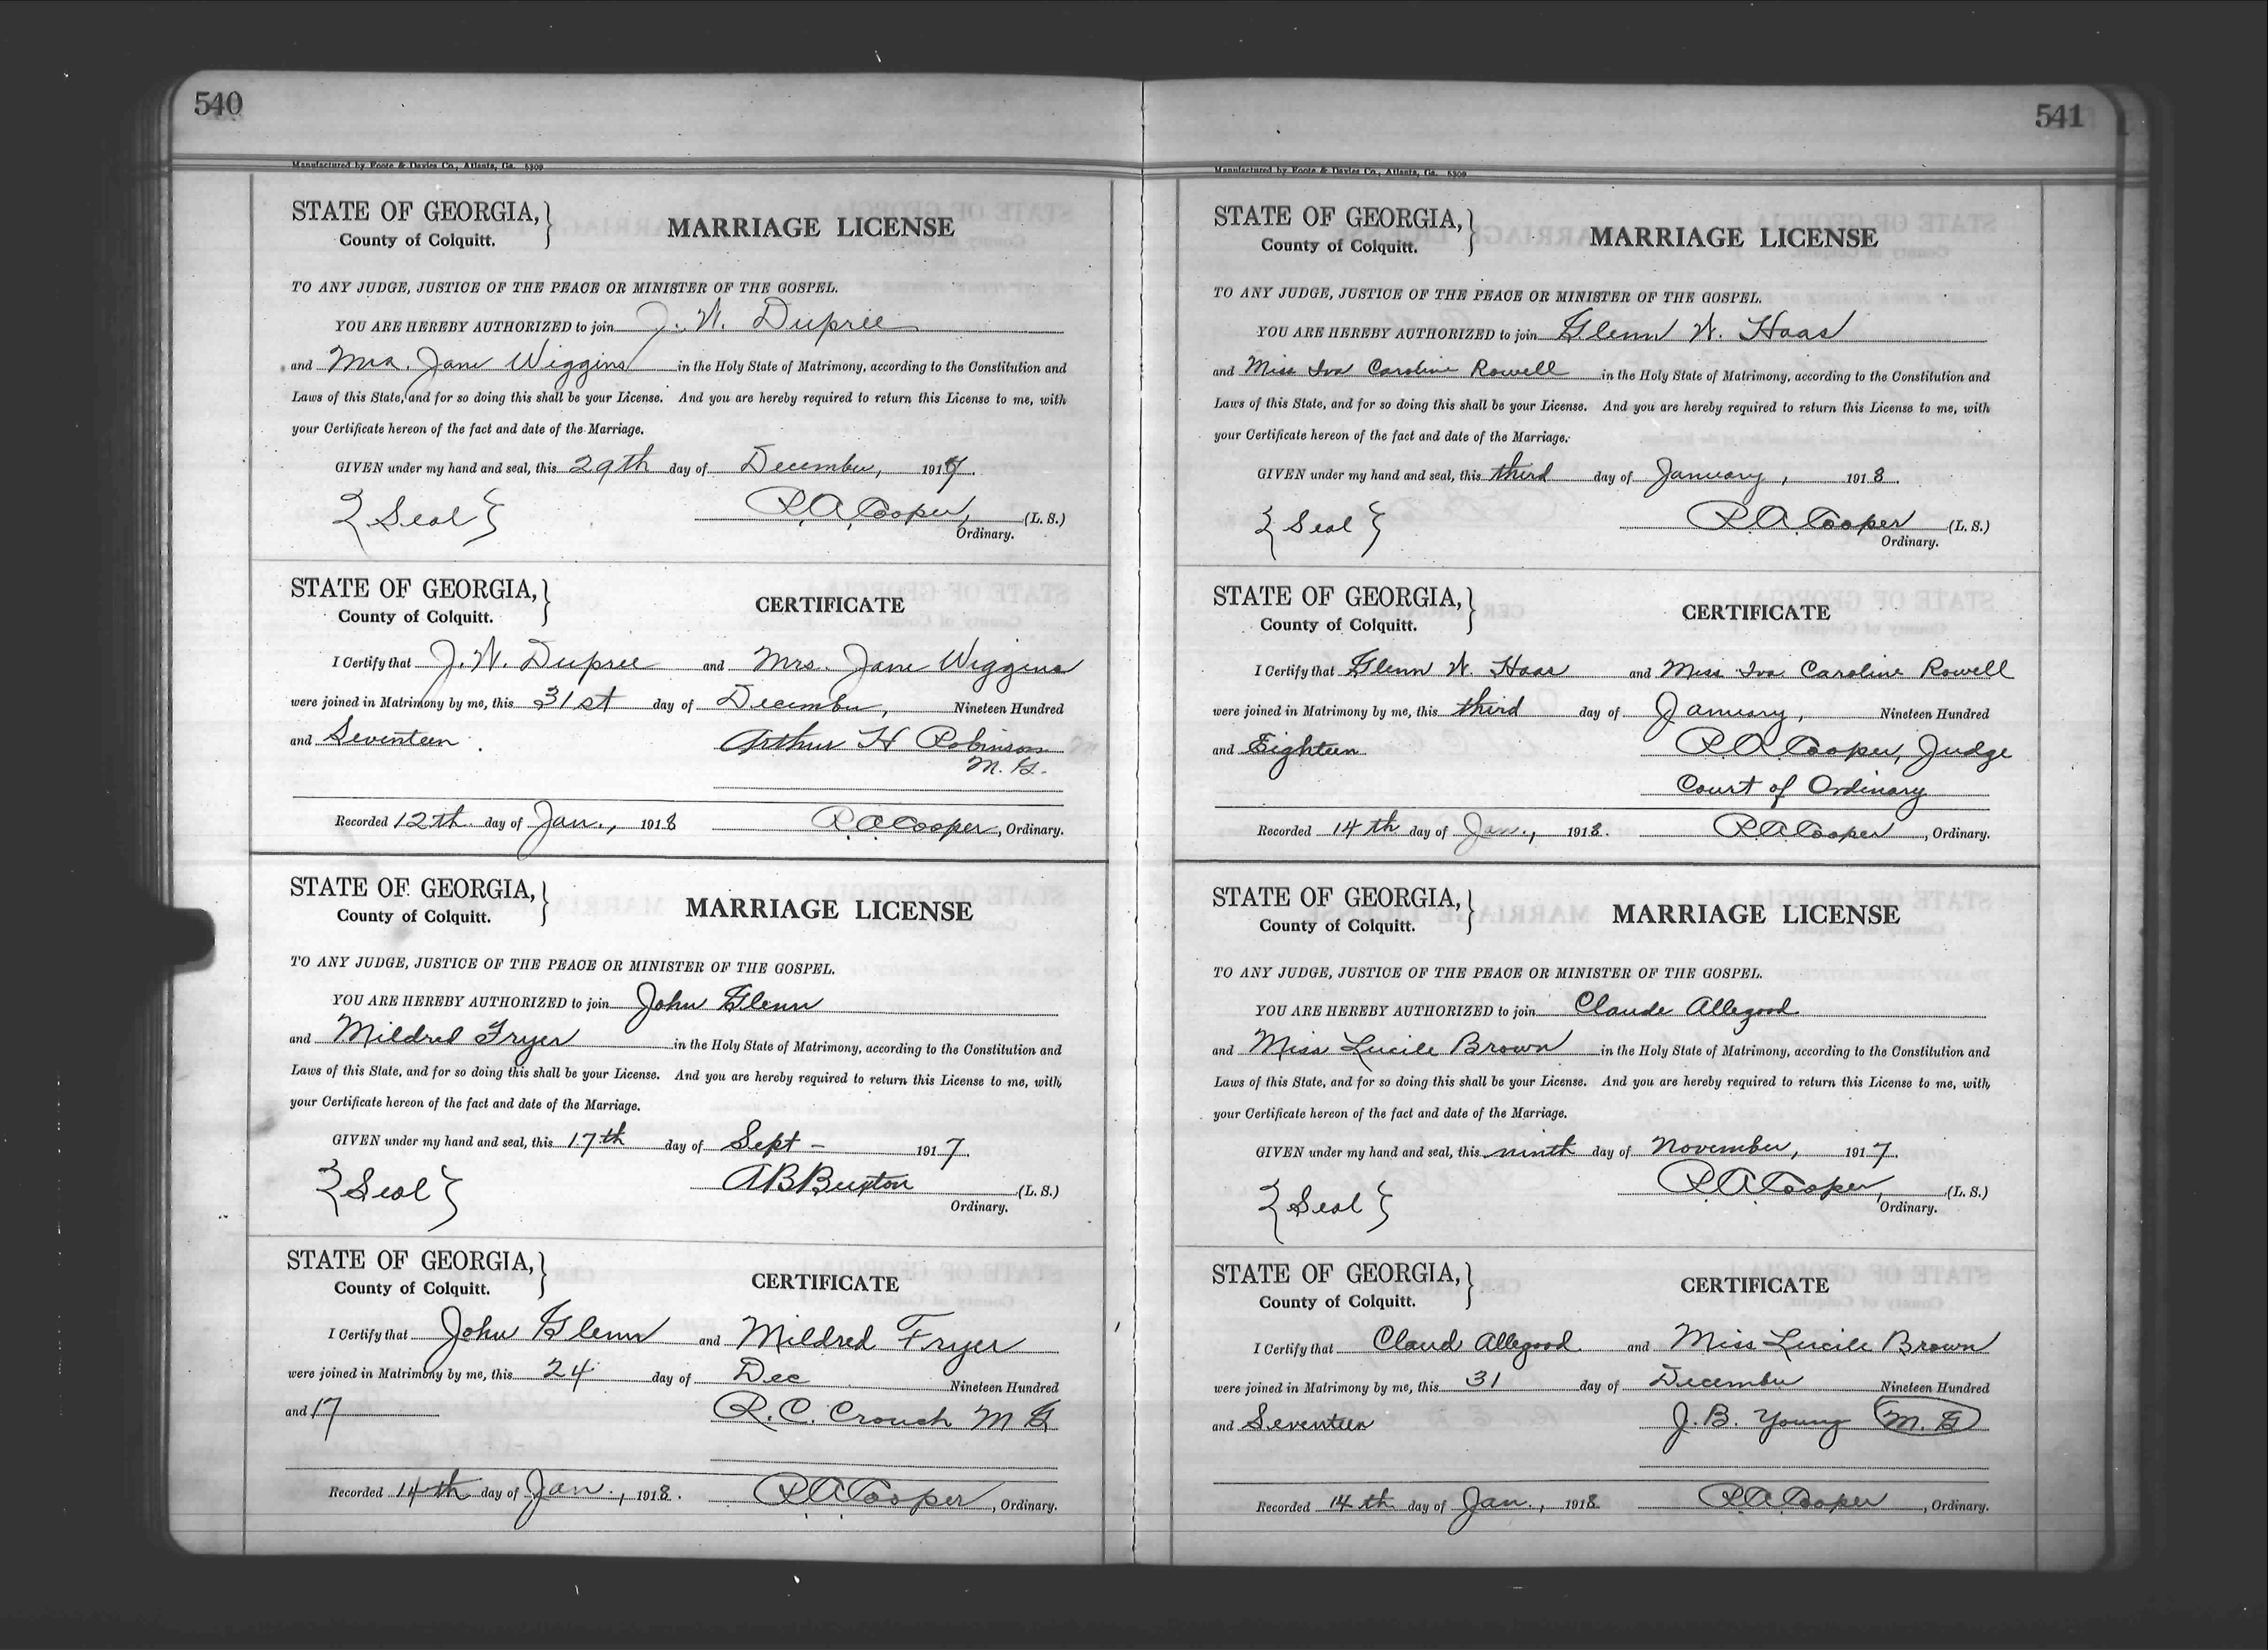 540
Manufactured by Foote & Davies Co., Atlanta, Ga. 5309
STATE OF GEORGIA,
County of Colquitt.
MARRIAGE LICENSE
TO ANY JUDGE, JUSTICE OF THE PEACE OR MINISTER OF THE GOSPEL.
YOU ARE HEREBY AUTHORIZED to join J. W. Dupree
and Mrs. Jane Wiggins in the Holy State of Matrimony, according to the Constitution and
Laws of this State, and for so doing this shall be your License. And you are hereby required to return this License to me, with
your Certificate hereon of the fact and date of the Marriage.
GIVEN under my hand and seal, this 29th day of December, 1917.
{Seal} R.A. Cooper, (L. S.)
Ordinary.
STATE OF GEORGIA,
County of Colquitt.
CERTIFICATE
I Certify that J. W. Dupree and Mrs. Jane Wiggins
were joined in Matrimony by me, this 31st day of December, Nineteen Hundred
and Seventeen. Arthur H Robinson
M. G.
Recorded 12th day of Jan., 1918 R.A. Cooper, Ordinary.
STATE OF GEORGIA,
County of Colquitt.
MARRIAGE LICENSE
TO ANY JUDGE, JUSTICE OF THE PEACE OR MINISTER OF THE GOSPEL.
YOU ARE HEREBY AUTHORIZED to join John Glenn
and Mildred Fryer in the Holy State of Matrimony, according to the Constitution and
Laws of this State, and for so doing this shall be your License. And you are hereby required to return this License to me, with
your Certificate hereon of the fact and date of the Marriage.
GIVEN under my hand and seal, this 17th day of Sept - 1917.
{Seal} A B Buxton (L. S.)
Ordinary.
STATE OF GEORGIA,
County of Colquitt.
CERTIFICATE
I Certify that John Glenn and Mildred Fryer
were joined in Matrimony by me, this 24 day of Dec Nineteen Hundred
and 17 R. C. Crouch M G
Recorded 14th day of Jan., 1918. R.A. Cooper, Ordinary.
541
Manufactured by Foote & Davies Co., Atlanta, Ga. 5309
STATE OF GEORGIA,
County of Colquitt.
MARRIAGE LICENSE
TO ANY JUDGE, JUSTICE OF THE PEACE OR MINISTER OF THE GOSPEL.
YOU ARE HEREBY AUTHORIZED to join Glenn W. Haas
and Miss Iva Caroline Rowell in the Holy State of Matrimony, according to the Constitution and
Laws of this State, and for so doing this shall be your License. And you are hereby required to return this License to me, with
your Certificate hereon of the fact and date of the Marriage.
GIVEN under my hand and seal, this third day of January, 1918.
{Seal} R.A. Cooper (L. S.)
Ordinary.
STATE OF GEORGIA,
County of Colquitt.
CERTIFICATE
I Certify that Glenn W. Haas and Miss Iva Caroline Rowell
were joined in Matrimony by me, this third day of January, Nineteen Hundred
and Eighteen R.A. Cooper, Judge
Court of Ordinary
Recorded 14th day of Jan., 1918. R.A. Cooper, Ordinary.
STATE OF GEORGIA,
County of Colquitt.
MARRIAGE LICENSE
TO ANY JUDGE, JUSTICE OF THE PEACE OR MINISTER OF THE GOSPEL.
YOU ARE HEREBY AUTHORIZED to join Claude Allegood
and Miss Lucile Brown in the Holy State of Matrimony, according to the Constitution and
Laws of this State, and for so doing this shall be your License. And you are hereby required to return this License to me, with
your Certificate hereon of the fact and date of the Marriage.
GIVEN under my hand and seal, this ninth day of November, 1917.
{Seal} R.A. Cooper, (L. S.)
Ordinary.
STATE OF GEORGIA,
County of Colquitt.
CERTIFICATE
I Certify that Claud Allegood and Miss Lucile Brown
were joined in Matrimony by me, this 31 day of December Nineteen Hundred
and Seventeen J. B. Young M. G
Recorded 14th day of Jan., 1918 R.A. Cooper, Ordinary.